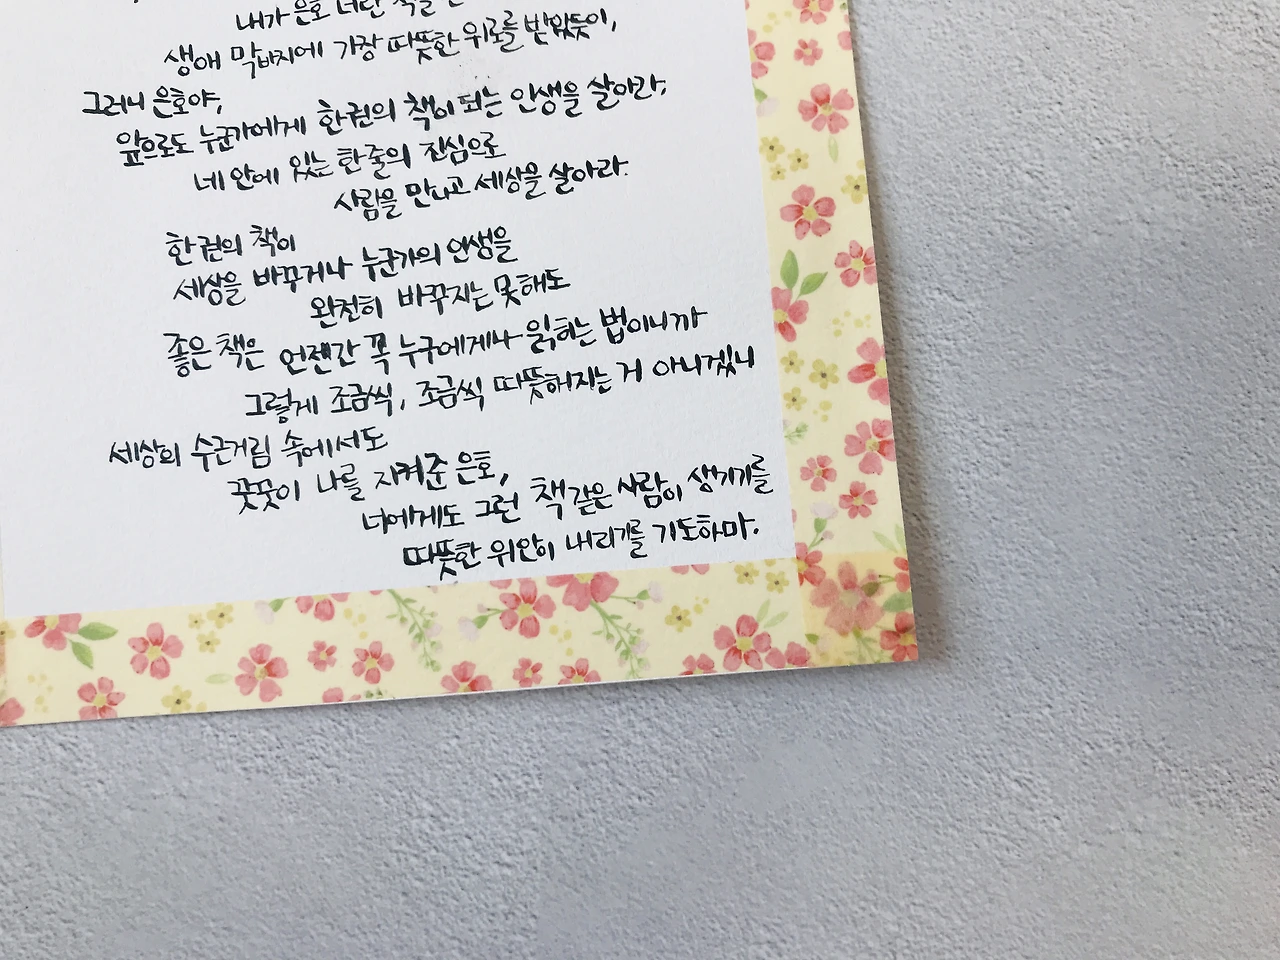 내가 은호 너란 책을
생애 막바지에 가장 따뜻한 위로를 받았듯이,
그러니 은호야,
앞으로도 누군가에게 한 권의 책이 되는 인생을 살아라.
네 안에 있는 한 줄의 진심으로
사람을 만나고 세상을 살아라.
한 권의 책이
세상을 바꾸거나 누군가의 인생을
완전히 바꾸지는 못해도
좋은 책은 언젠간 꼭 누구에게나 읽히는 법이니까
그렇게 조금씩, 조금씩 따뜻해지는 거 아니겠니
세상의 수근거림 속에서도
꿋꿋이 나를 지켜준 은호,
너에게도 그런 책 같은 사람이 생기기를
따뜻한 위안이 내리기를 기도하마.